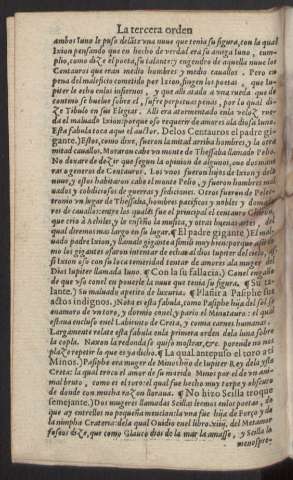 La tercera orden
ambos Iuno le puso delãte vna nuue que tenia su figura, con la qual
Ixion pensando que en hecho de verdad era su amiga Iuno, cum-
plio, como dize el poeta, su talante: y engendro de aquella nuue los
Centauros que eran medio hombres y medio cauallos. Pero en
pena del maleficio cometido por Ixion, fingen los poetas, que Iu-
piter le echo enlos infiernos, y que alli atado a vna rueda que de
contino se buelue sobre el, sufre perpetuas penas, por lo qual di-
ze Tibulo en sus Elegias. Alli era atormentado enla veloz rue-
da el maluado Ixion: porque oso requerir de amores ala diosa Iuno.
Esta fabula toca aqui el auctor. Delos Centauros el padre gi-
gante.) Estos, como dixe, fueron la mitad arriba hombres y la otra
mitad cauallos. Moraron cabe vn monte de Thessalia llamado Pelio.
No dexare de dezir que segun la opinion de algunos, ouo dos mane
ras o generos de Centauros. Los vnos fueron hijos de Ixion y dela
nuue, y estos habitaron cabe el monte Pelio, y fueron hombres mal-
uados y cobdiciosos de guerras y sediciones. Otros fueron de Pele-
tronio vn lugar de Thessalia, hombres pacificos y nobles y domado-
res de cauallos: entre los quales fue el principal el centauro Chiron,
que crio a Archiles, y le enseño la musica, y otras buenas artes, del
qual diremos mas largo en su lugar. ¶ El padre gigante) El mal-
uado padre Ixion, y llamalo gigante a simili muy bien: porque assi co
mo los gigantes osaron intentar de echar al dios Iupiter del cielo, assi
si Ixion oso con su loca temeridad tentar de amores ala muger del
Dios Iupiter llamada Iuno. ¶ Con la su fallacia) Conel engaño
de que vso conel en ponerle la nuue que tenia su figura. ¶ Su ta-
lante.) Su maluado apetito de luxuria. ¶ Planir a Pasiphe sus
actos indignos.) Nota es esta fabula, como Pasiphe hija del sol se
enamoro de vn toro, y dormio conel y pario el Minotauro: el qual
estaua encluso enel Labirinto de Creta, y comia carnes humanas.
Largamente relate esta fabula enla primera orden dela luna sobre
la copla. Naxon la redonda se quiso mostrar, etc. porende no nos
plazo repetir lo que es ya dicho. ¶ La qual antepuso el toro a ti
Minos.) Pasiphe era muger de Minos hijo de Iupiter Rey dela ysla
Creta: la qual troco el amor de su marido Minos por el de vn ani-
mal bruto, como es el toro: el qual fue hecho muy torpe y obscuro
de donde con mucha razon lloraua. ¶ No hizo Scilla troque
semejante.) Dos mugeres llamadas Scillas leemos enlos poetas, de
que ay entrellos no pequeña mencion: la vna fue hija de Forço y de
la nimpha Crateria: dela qual Ouidio enel libro.xiiij. del Metamor
fosnos dize, que como Glauco dios de la mar la amasse, y Scilla lo
menospre-